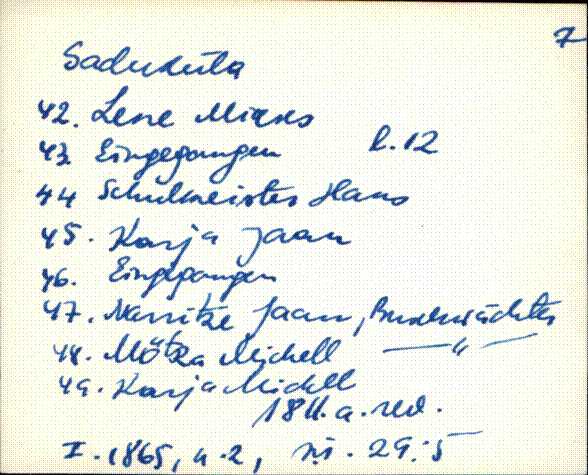 7
Saduküla
42. Lene Mick's
43. Eingegangen l. 12
44 Schulmeister Hans
45. Karja Jaan
46. Eingegangen
47. Narritze Jaan, Buschwächter
48. Mötza Michell — " —
49. Karja Michell
1811. a. rev.
I. 1865, n. 2, nr. 29:5